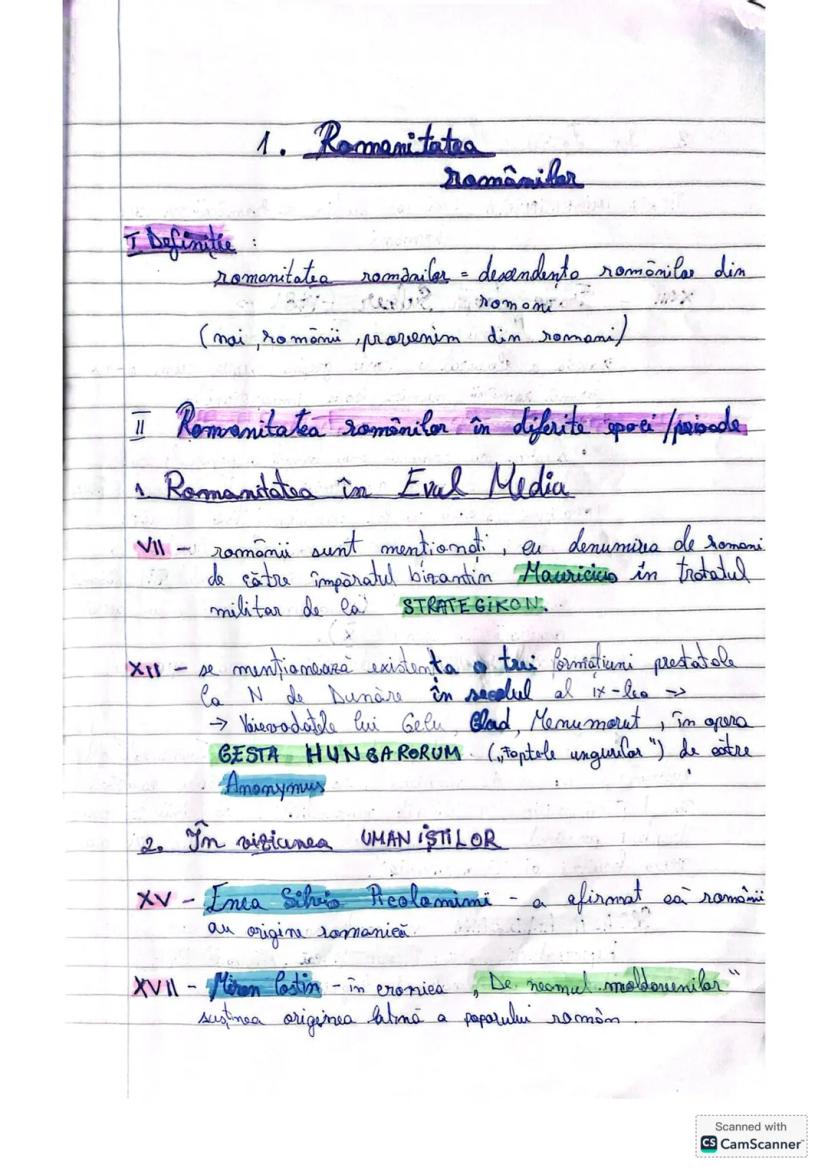 1. Romanitatea
românilor
I Definiție :
romanitatea românilor = descendența românilor din
romani.
(noi, românii, provenim din romani)
II Romanitatea românilor în diferite epoci/perioade
1. Romanitatea în Evul Mediu
VII - românii sunt menționați, cu denumirea de romani
de către împăratul bizantin Mauricius în tratatul
militar de la STRATEGIKON.
XII - se menționează existența a trei formațiuni prestatale
la N de Dunăre în secolul al IX-lea →
→ Voievodatele lui Gelu, Glad, Menumorut, în opera
GESTA HUNGARORUM („Faptele ungurilor") de către
Anonymus
2. În viziunea UMANIȘTILOR
XV - Enea Silvio Picolomimi - a afirmat că românii
au origine romanică.
XVII - Miron Costin - în cronica „De neamul moldovenilor"
susținea originea latină a poporului român.
Scanned with
CS CamScanner